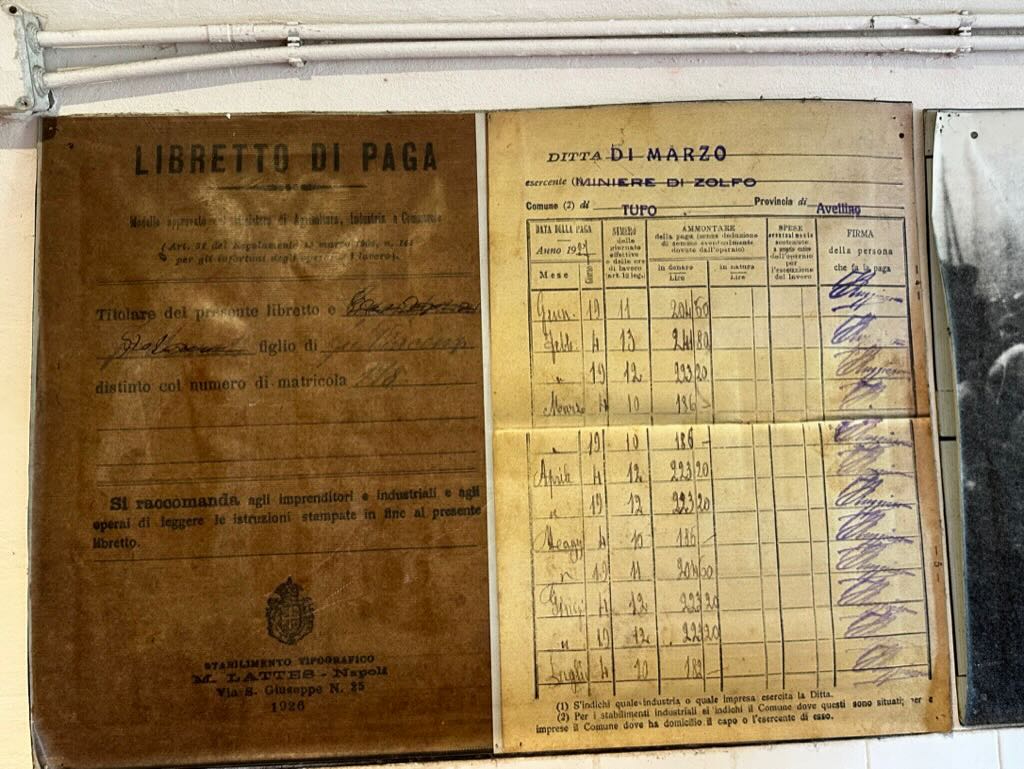 LIBRETTO DI PAGA
Modello approvato Ministero di Agricoltura, Industria e Commercio
(Art. del Regolamento 13 marzo n.
per gli infortuni degli operai lavoro).
Titolare del presente libretto e
figlio di
distinto col numero di matricola
Si raccomanda agli imprenditori e industriali e agli
operai di leggere le istruzioni stampate in fine al presente
libretto.
STABILIMENTO TIPOGRAFICO
M. LATTES - Napoli
Via S. Giuseppe N. 25
1926
DITTA DI MARZO
esercente (1) MINIERE DI ZOLFO
Comune (2) di TUFO Provincia di Avellino
DATA DELLA PAGA
Anno 19
Mese
Giorno
NUMERO
delle
giornate
effettive
e delle ore
di lavoro
(art. 12 leg.)
AMMONTARE
della paga (senza deduzione
di somme eventualmente
dovute dall'operaio)
in denaro
Lire
in natura
Lire
SPESE
sostenute
dall'operaio
per
l'esecuzione
del lavoro
FIRMA
della persona
che fa la paga
Genn. 19 11 204 60
Febb. 4 13 241 80
" 19 12 223 20
Marzo 4 10 186 -
" 19 10 186 -
Aprile 4 12 223 20
" 19 12 223 20
4 10 186 -
" 19 11 204 60
4 12 223 20
" 19 12 223 20
Luglio 4 10
(1) S'indichi quale industria o quale impresa esercita la Ditta.
(2) Per i stabilimenti industriali si indichi il Comune dove questi sono situati; per
imprese il Comune dove ha domicilio il capo o l'esercente di esso.